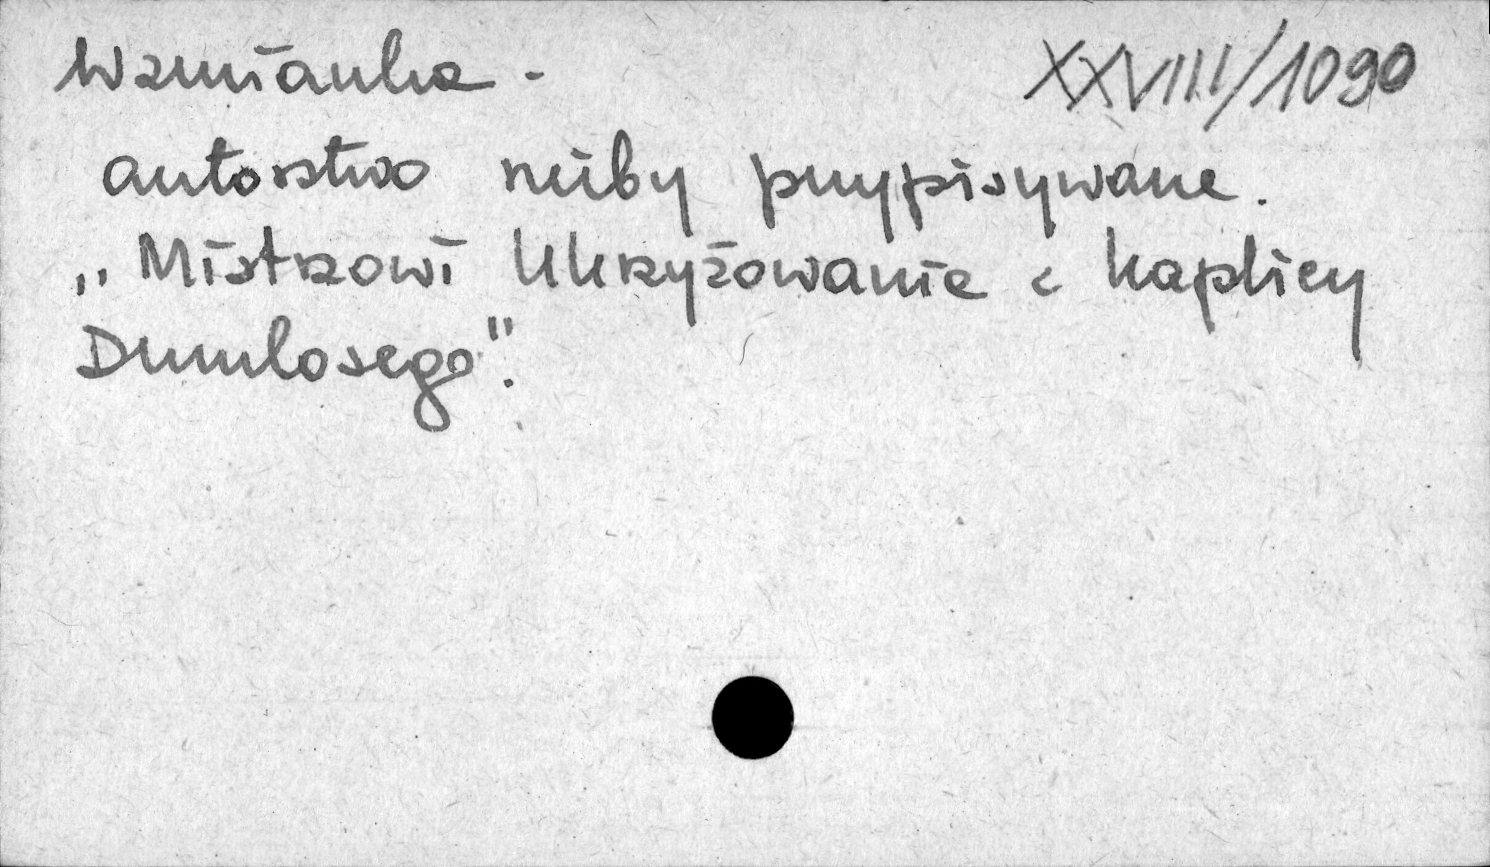 Wzmianka - XXVIII/1090
autorstwo rzeźby przypisywane.
„Mistrzowi Ukrzyżowanie z kaplicy
Dumlosego".